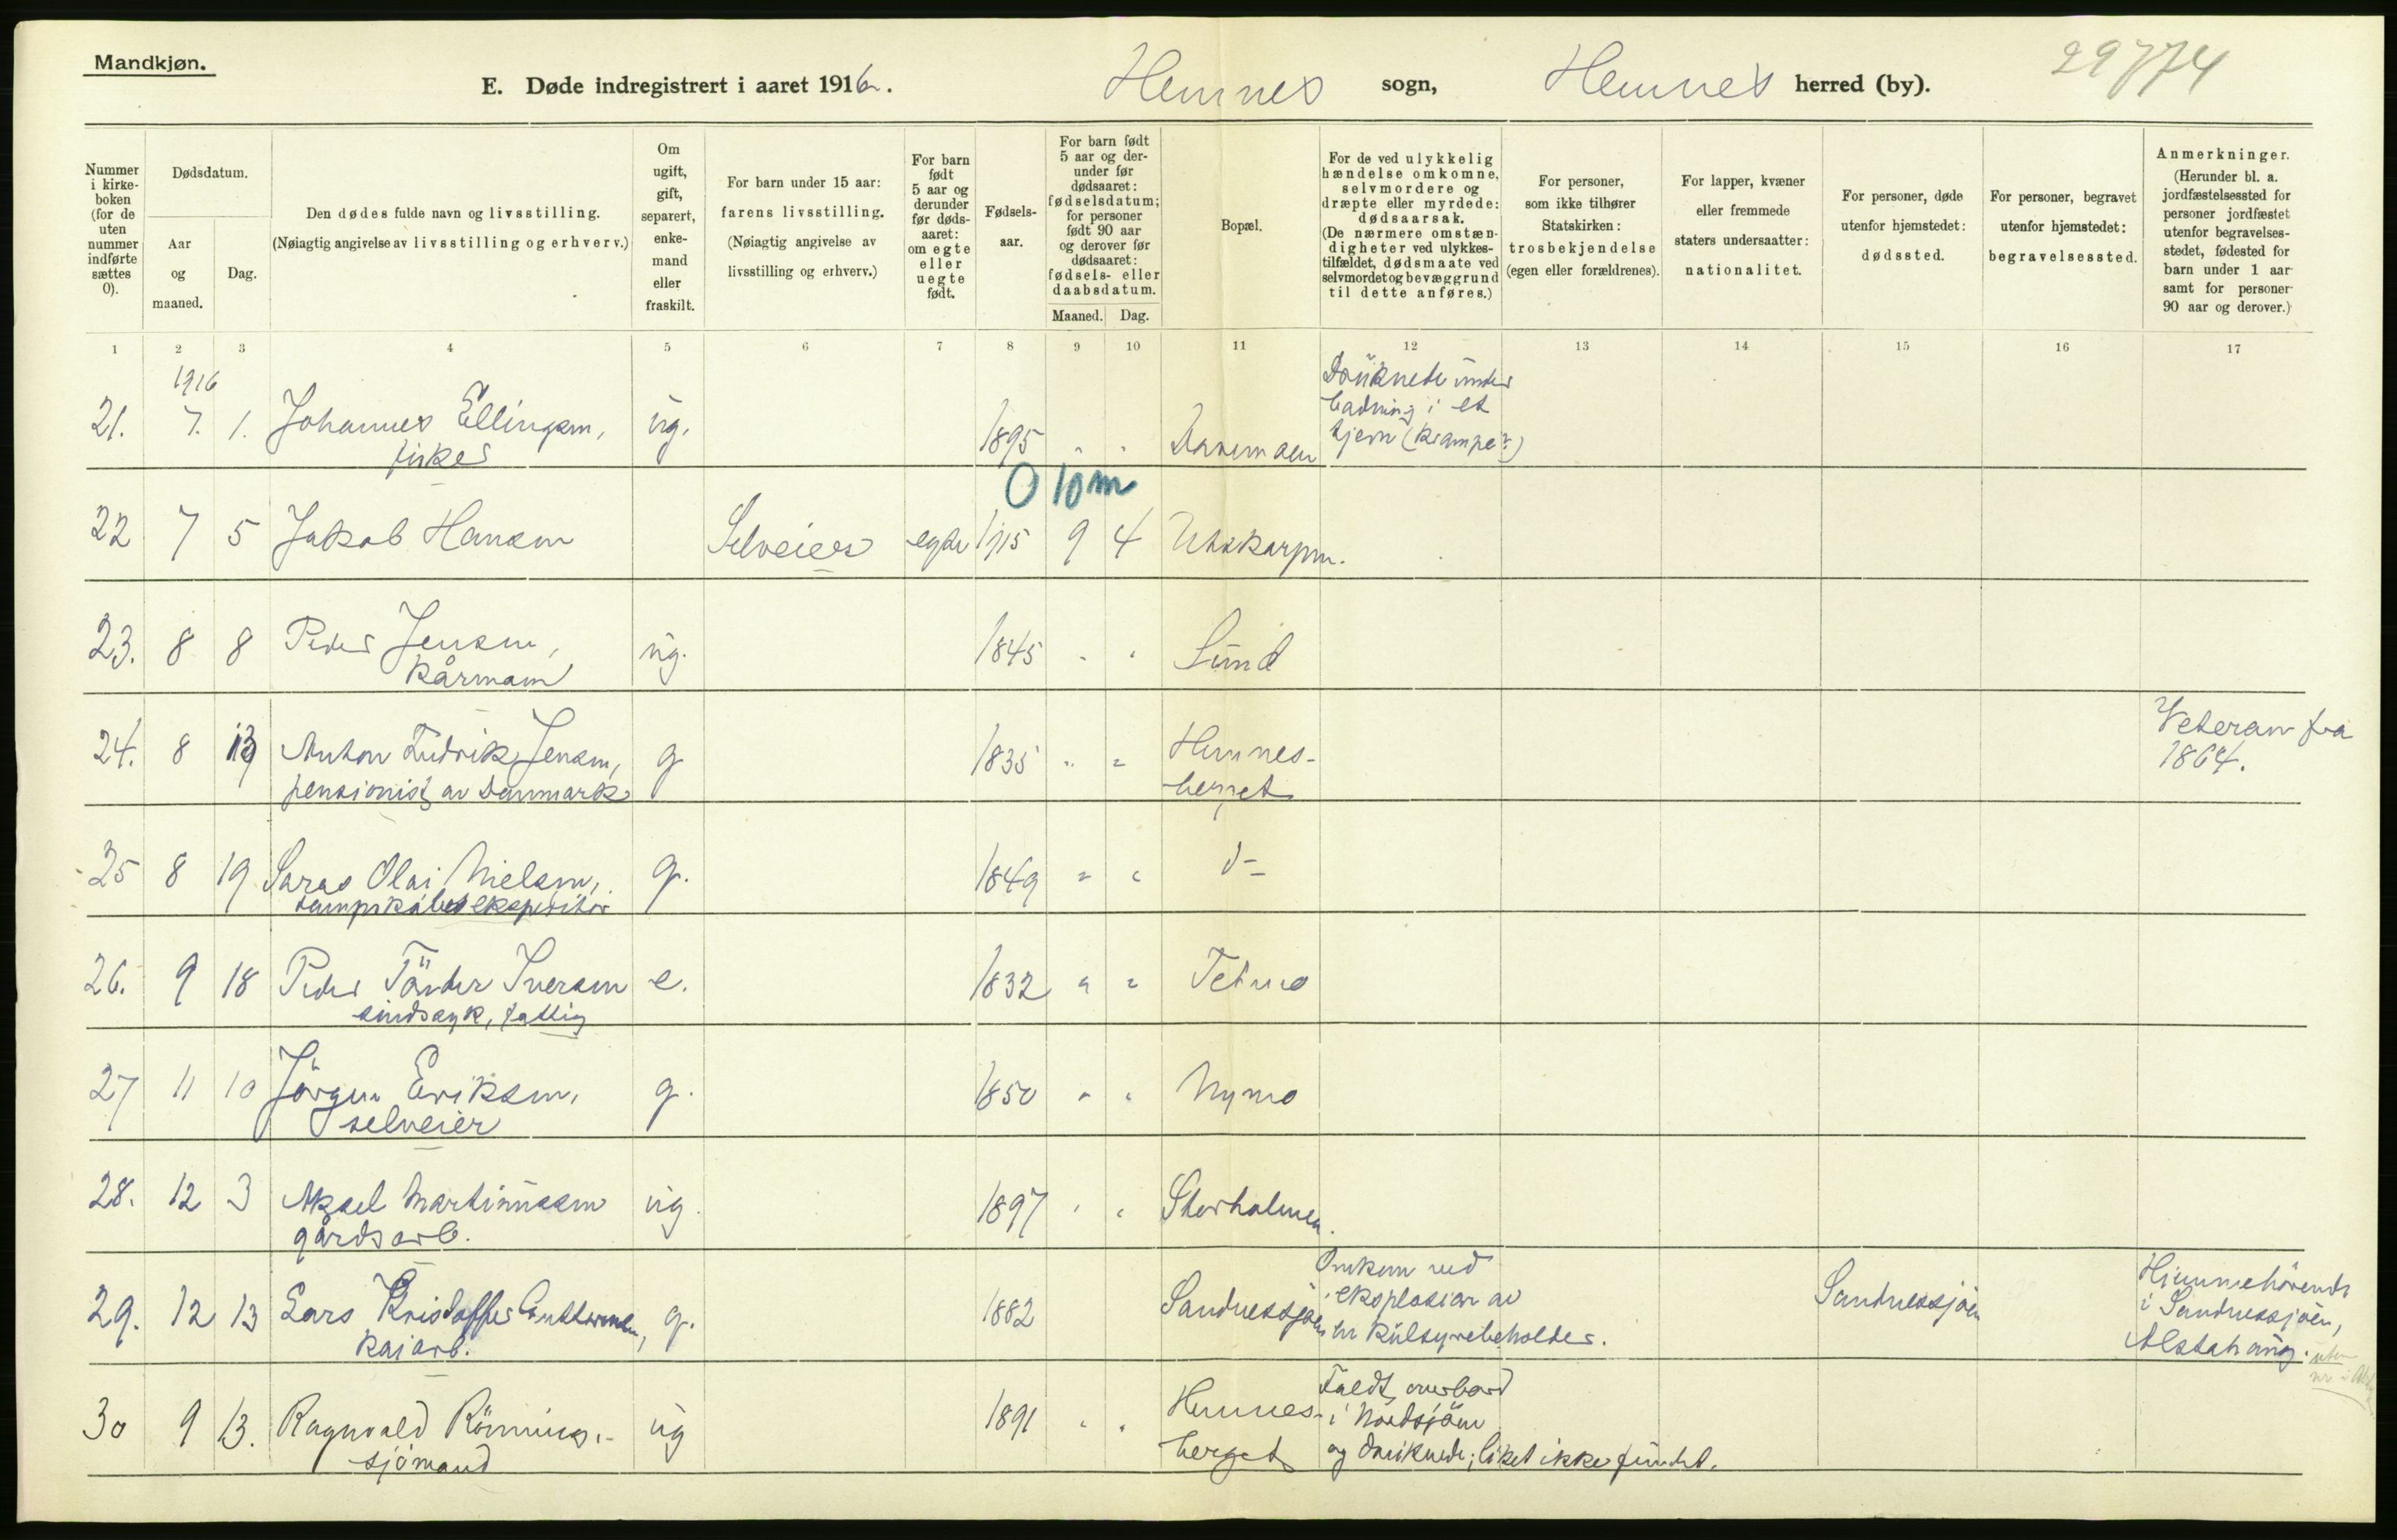 Mandkjøn.
E. Døde indregistrert i aaret 1916. Hemnes sogn, Hemnes herred (by). 29774
Nummer i kirke-boken (for de uten nummer indførte sættes 0).
Dødsdatum.
Aar og maaned.
Dag.
Den dødes fulde navn og livsstilling.
(Nøiagtig angivelse av livsstilling og erhverv.)
Om ugift, gift, separert, enke-mand eller fraskilt.
For barn under 15 aar:
farens livsstilling.
(Nøiagtig angivelse av
livsstilling og erhverv.)
For barn født 5 aar og derunder før døds-aaret: om egte eller uegte født.
Fødsels-aar.
For barn født 5 aar og der-under før dødsaaret: fødselsdatum; for personer født 90 aar og derover før dødsaaret: fødsels- eller daabsdatum.
Maaned. Dag.
Bopæl.
For de ved ulykkelig hændelse omkomne, selvmordere og dræpte eller myrdede: dødsaarsak. (De nærmere omstæn-digheter ved ulykkes-tilfældet, dødsmaate ved selvmordet og bevæggrund til dette anføres.)
For personer, som ikke tilhører Statskirken: trosbekjendelse (egen eller forældrenes).
For lapper, kvæner eller fremmede staters undersaatter: nationalitet.
For personer, døde utenfor hjemstedet: dødssted.
For personer, begravet utenfor hjemstedet: begravelsessted.
Anmerkninger. (Herunder bl. a. jordfæstelsessted for personer jordfæstet utenfor begravelses-stedet, fødested for barn under 1 aar samt for personer 90 aar og derover.)
1 2 3 4 5 6 7 8 9 10 11 12 13 14 15 16 17
1916
21. 7. 1. Johannes Ellingsen, ug. 1895 " "
fisker
Druknede under
badning i et
tjern (krampe?)
0 10 m
22 7 5 Jakob Hansen Selveier egte 1915 9 4 Utskarpen.
23. 8 8 Peder Jensen, ug. 1845 " " Sund
kårmann
24. 8 13 Anton Ludvik Jensen, g 1835 " " Hemnes-
pensionist av Danmark berget
Veteran fra
1864.
25 8 19 Olai Nielsen, g. 1849 " " d-
dampskibsekspeditør
26. 9 18 Peder Tønder Iversen e. 1832 " " Tetmo
sindssyk, fattig
27 11 10 Jørgen Eriksen, g. 1850 " " Nymo
selveier
28. 12 3 Aksel Martinussen ug. 1897 " " Storholmen.
gårdsarb.
29. 12 13 Lars Kristoffer g. 1882 Sandnessjøen Sandnessjøen
kaiarb.
Omkom ved
eksplosion av
en kulsyrebeholder.
Hjemmehørende
i Sandnessjøen,
Alstahaug. uten
30 9 13. Ragnvald Rønning, ug 1891 " " Hemnes-
sjømand berget
Faldt overbord
i Nordsjøen
og druknede; liket ikke fundet.